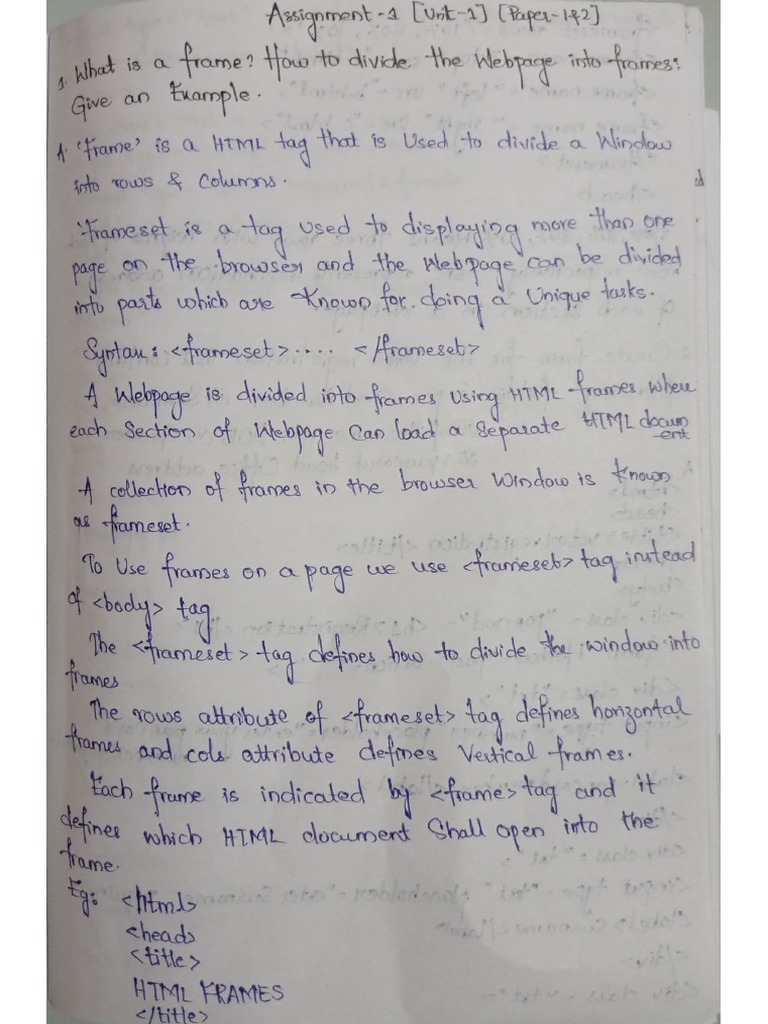 Assignment-1 [Unit-1] [Paper-1&2]
1. What is a frame? How to divide the Webpage into frames?
Give an Example.
A. 'Frame' is a HTML tag that is Used to divide a Window
into rows & Columns.
Frameset is a tag used to displaying more than one
page on the browser and the Webpage can be divided
into parts which are Known for doing a Unique tasks.
Syntax: <frameset> .... </frameset>
A Webpage is divided into frames Using HTML frames where
each Section of Webpage Can load a Separate HTML document
A collection of frames in the browser Window is Known
as frameset.
To Use frames on a page we use <frameset> tag instead
of <body> tag
The <frameset> tag defines how to divide the window into
frames
The rows attribute of <frameset> tag defines horizontal
frames and cols attribute defines Vertical frames.
Each frame is indicated by <frame> tag and it
defines which HTML document Shall open into the
frame.
Eg: <html>
<head>
<title>
HTML FRAMES
</title>